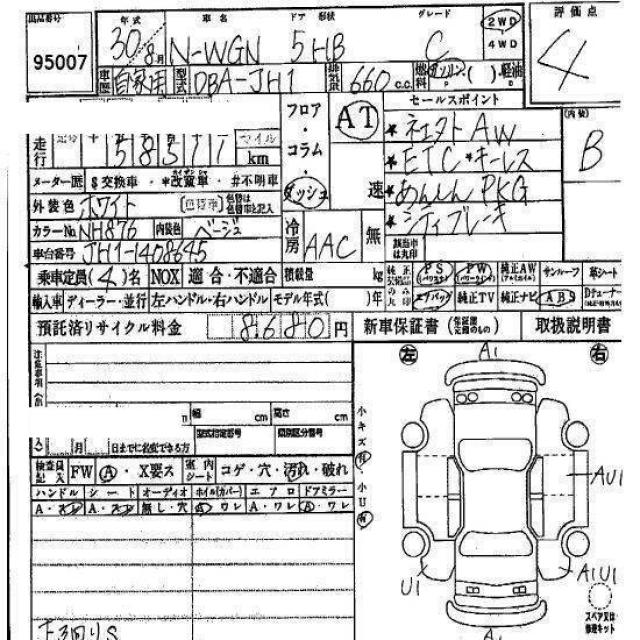 出品番号 年式 車名 ドア 形状 グレード 2WD 評価点
95007 30年8月 N-WGN 5HB G 4WD 4
車歴 自家用 型式 DBA-JH1 排気量 660c.c. 燃料 ガソリン・( )・軽油
フロア・コラム・ダッシュ AT 速 セールスポイント (内装) B
走行 十 万 千 百 十 マイル km
58511
*社外AW
*ETC*キーレス
*あんしんPKG
*シティブレーキ
メーター歴 $交換車・*改竄車・#不明車
外装色 ホワイト (色替車) 色替は色替車と記入
カラーNo NH876 内装色 ベージュ 冷房 AAC 無 該当車は丸印
車台番号 JH1-1408645
乗車定員(4)名 NOX 適合・不適合 積載量 kg PS (パワステ) PW (パワーウインド) 純正AW (アルミホイル) サンルーフ 革シート
輸入車 ディーラー・並行 左ハンドル・右ハンドル モデル年式( )年 エアバッグ 純正TV 純正ナビ ABS Dチューナー
預託済リサイクル料金 8,680円 新車保証書 (保証書 記録のもの) 取扱説明書
注意事項
左 A1 右
幅 cm 高さ cm
型式指定番号 類別区分番号
月 日までに名変できる方
小キズ有・小U有
検査員記入 FW A・X要ス 室内シート コゲ・穴・汚れ・破れ
ハンドル シート オーディオ ホイル(カバー) エアロ ドアミラー
A・スレ A・スレ 無し・穴 A ワレ A・ワレ A・ワレ
AU1
U1 A1U1
スペア又は修理キット
下回りS
A1